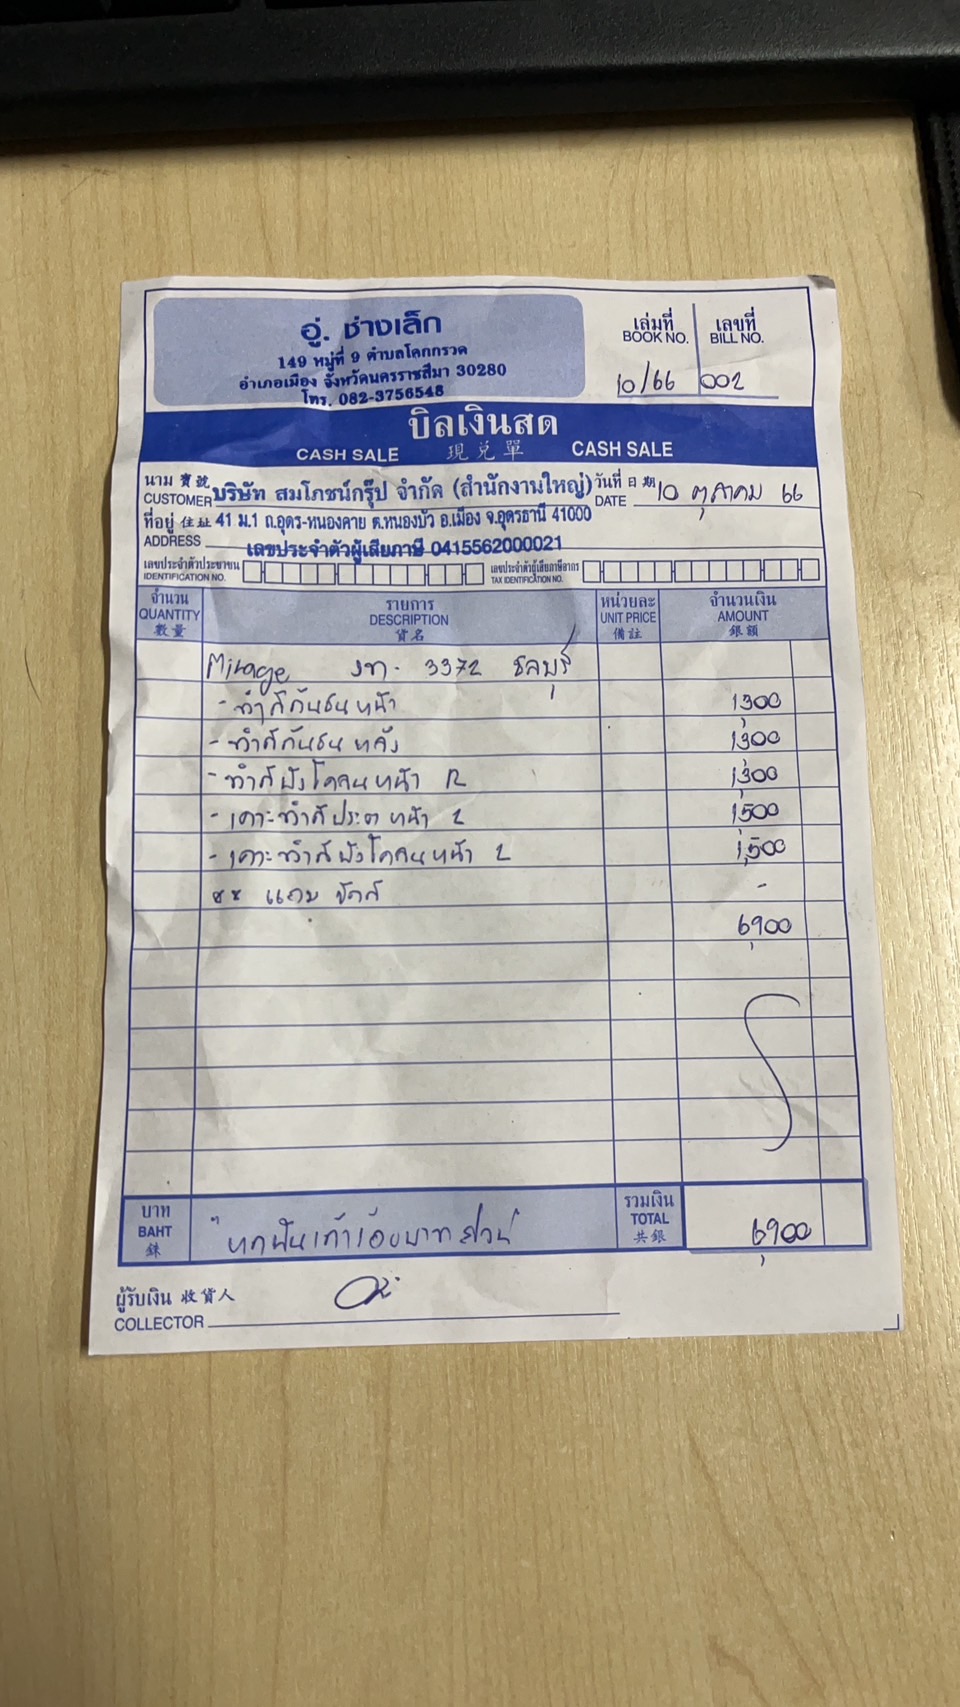 อู่. ช่างเล็ก
149 หมู่ที่ 9 ตำบลโคกกรวด
อำเภอเมือง จังหวัดนครราชสีมา 30280
โทร. 082-3756548
เล่มที่ เลขที่
BOOK NO. BILL NO.
10/66 002
บิลเงินสด
CASH SALE 現兌單 CASH SALE
นาม 寶號 วันที่ 日期
CUSTOMER บริษัท สมโภชน์กรุ๊ป จำกัด (สำนักงานใหญ่) DATE 10 ตุลาคม 66
ที่อยู่ 住址 41 ม.1 ถ.อุดร-หนองคาย ต.หนองบัว อ.เมือง จ.อุดรธานี 41000
ADDRESS เลขประจำตัวผู้เสียภาษี 0415562000021
เลขประจำตัวประชาชน เลขประจำตัวผู้เสียภาษีอากร
IDENTIFICATION NO. TAX IDENTIFICATION NO.
จำนวน รายการ หน่วยละ จำนวนเงิน
QUANTITY DESCRIPTION UNIT PRICE AMOUNT
數量 貨名 備註 銀額
Mirage 3372 ชลบุรี
- ทำสีกันชนหน้า 1,300
- ทำสีกันชนหลัง 1,300
- ทำสีบังโคลนหน้า R 1,300
- เคาะทำสีประตูหน้า L 1,500
- เคาะทำสีบังโคลนหน้า L 1,500
** แถม ขัดสี -
6,900
บาท รวมเงิน
BAHT หกพันเก้าร้อยบาทถ้วน TOTAL 6,900
銖 共銀
ผู้รับเงิน 收貨人
COLLECTOR